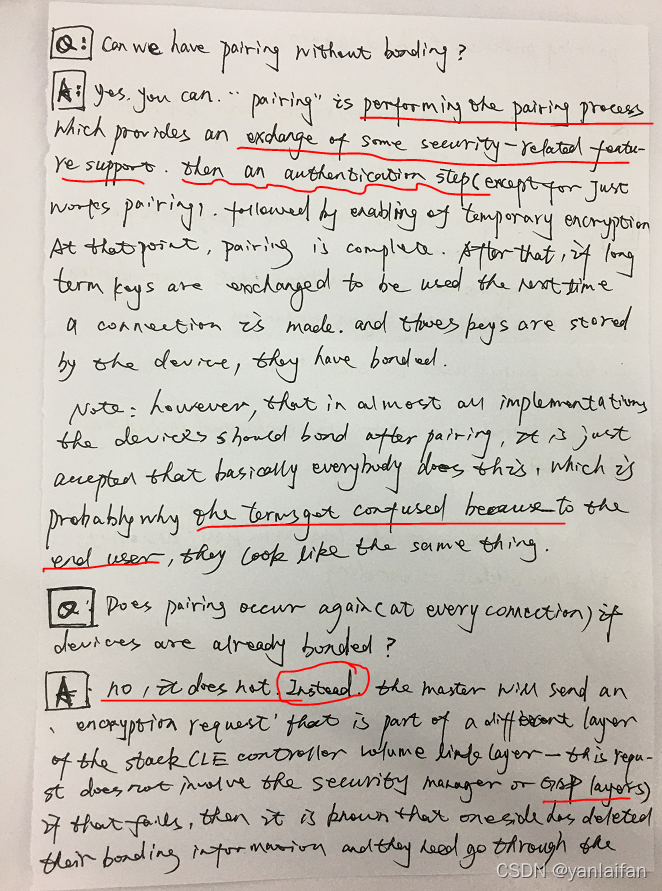 Q: Can we have pairing without bonding?
A: yes. you can. "pairing" is performing the pairing process
which provides an exchange of some security-related featu-
re support. then an authentication step (except for Just
works pairing). followed by enabling of temporary encryption
At that point, pairing is complete. After that, if long
term keys are exchanged to be used the next time
a connection is made. and those keys are stored
by the device, they have bonded.
Note: however, that in almost all implementations
the devices should bond after pairing, it is just
accepted that basically everybody does this, which is
probably why the terms get confused because to the
end user, they look like the same thing.
Q: Does pairing occur again (at every connection) if
devices are already bonded?
A: no, it does not. Instead. the master will send an
'encryption request' that is part of a different layer
of the stack (LE controller volume linde layer - this requ-
st does not involve the security manager or GAP layers)
if that fails, then it is known that one side has deleted
their bonding information and they need go through the
CSDN @yanlaifan